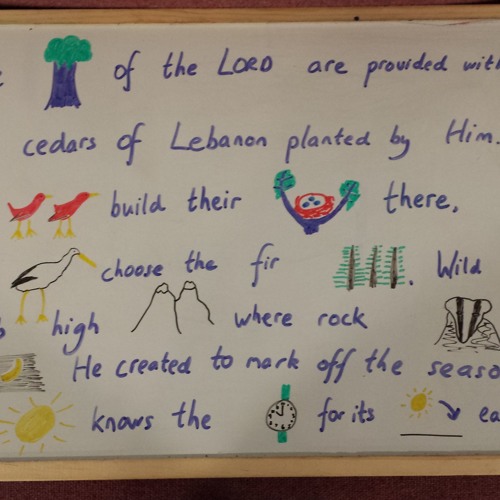 of the LORD are provided with
cedars of Lebanon planted by Him.
build their there,
choose the fir . Wild
high where rock
He created to mark off the seaso
knows the for its ea